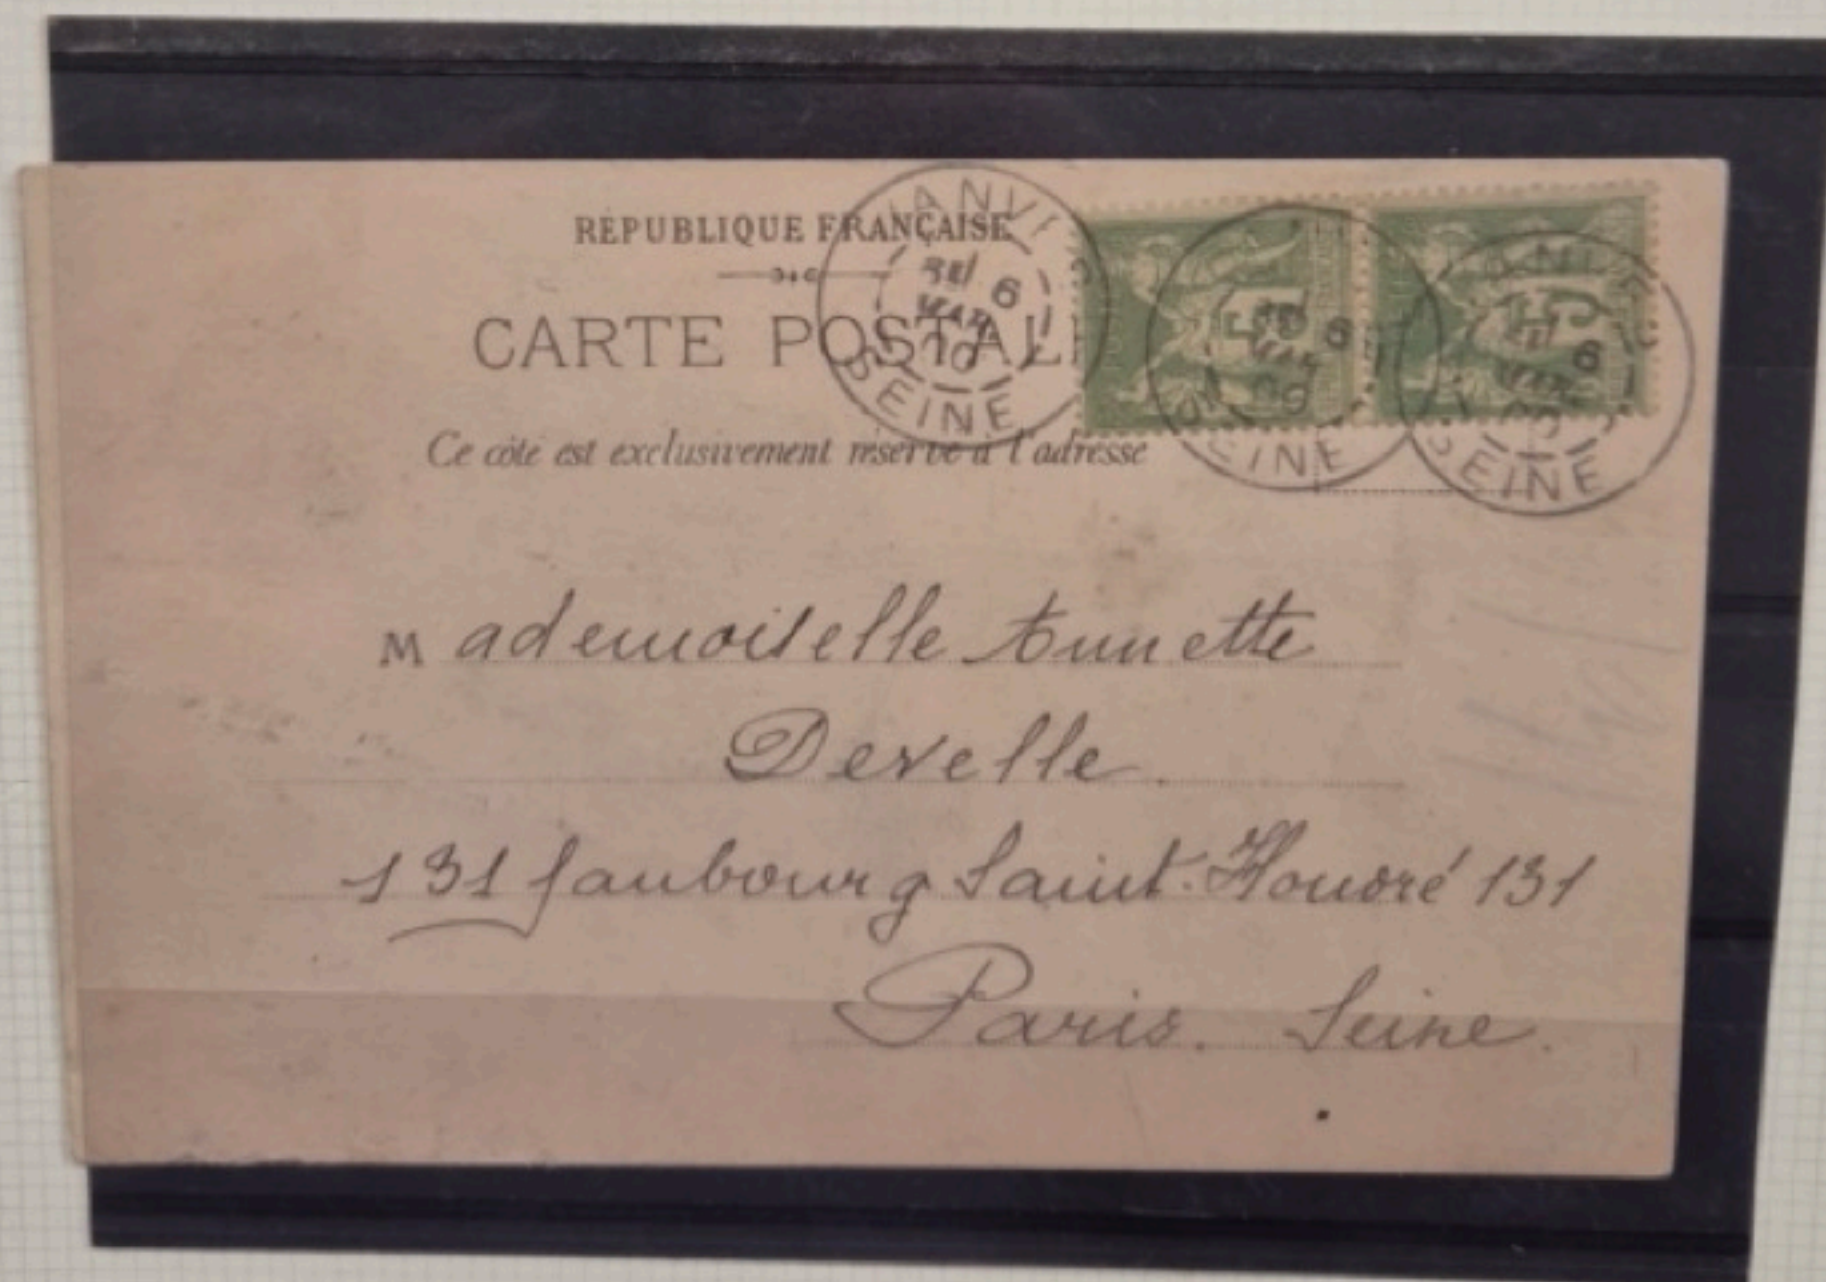 RÉPUBLIQUE FRANÇAISE
CARTE POSTALE
Ce côté est exclusivement réservé à l'adresse
VANVES
6
MAR
SEINE
5
6
MAR
SEINE
5
6
MAR
SEINE
Mademoiselle Annette
Develle
131 faubourg Saint-Honoré 131
Paris. Seine.